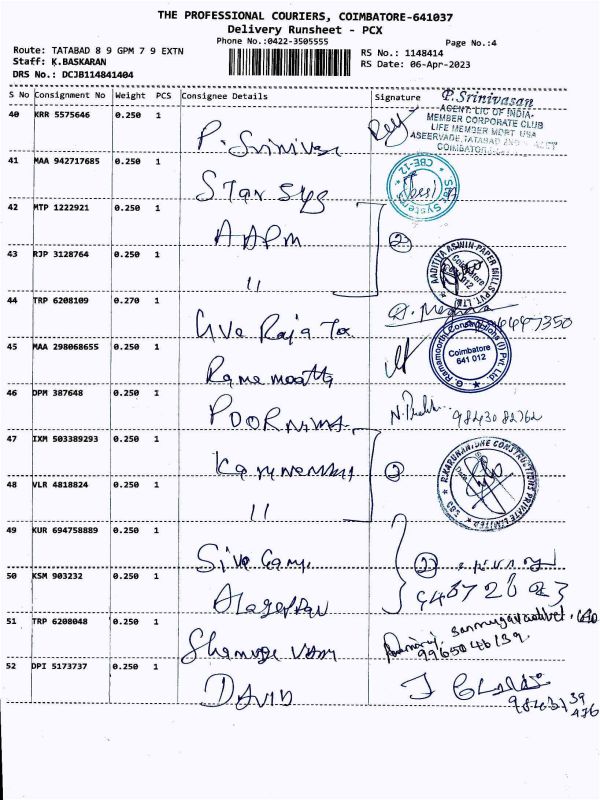 THE PROFESSIONAL COURIERS, COIMBATORE-641037
Delivery Runsheet - PCX
Phone No.:0422-3505555
Page No.:4
Route: TATABAD 8 9 GPM 7 9 EXTN
RS No.: 1148414
Staff: K.BASKARAN
RS Date: 06-Apr-2023
DRS No.: DCJB114841404
S No Consignment No Weight PCS Consignee Details Signature
P.Srinivasan
AGENT: LIC OF INDIA
MEMBER CORPORATE CLUB
LIFE MEMBER MDRT USA
COIMBATORE
40 KRR 5575646 0.250 1
P. Srinivas
41 MAA 942717685 0.250 1
Star Sys
Star Systems CBE-12
42 MTP 1222921 0.250 1
AAPM
2
43 RJP 3128764 0.250 1
"
AADITIYA ASWIN PAPER MILLS PVT. LTD.
Coimbatore
44 TRP 6208109 0.270 1
Raja
45 MAA 298068655 0.250 1
G. Ramamoorthi Constructions (I) Pvt. Ltd.
Coimbatore
641 012
46 DPM 387648 0.250 1
POORNIMA
9843082762
47 IXM 503389293 0.250 1
2
R.KARUNANIDHE CONSTRUCTIONS PRIVATE LIMITED
48 VLR 4818824 0.250 1
"
49 KUR 694758889 0.250 1
Siva
2
50 KSM 903232 0.250 1
Alagappan
51 TRP 6208048 0.250 1
9965046139
52 DPI 5173737 0.250 1
DAVID